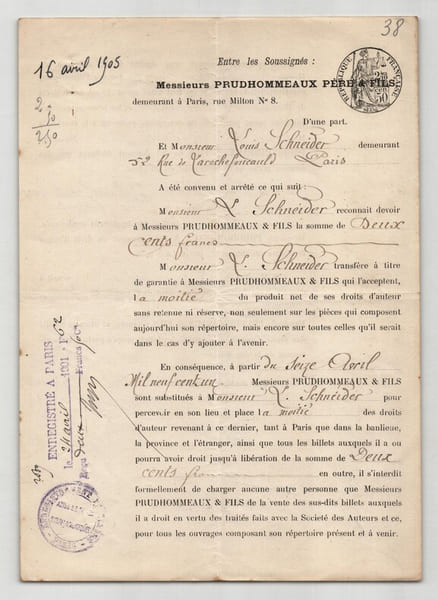 38
16 avril 1905
Entre les Soussignés :
RÉPUBLIQUE FRANÇAISE
Messieurs PRUDHOMMEAUX PÈRE & FILS
demeurant à Paris, rue Milton No 8.
2
50
2,50
D'une part.
Et Monsieur Louis Schneider demeurant
52 Rue de Larochefoucauld Paris
A été convenu et arrêté ce qui suit :
Monsieur L. Schneider reconnait devoir
à Messieurs PRUDHOMMEAUX & FILS la somme de Deux
cents francs
Monsieur L. Schneider transfère à titre
de garantie à Messieurs PRUDHOMMEAUX & FILS qui l'acceptent,
la moitié du produit net de ses droits d'auteur
sans retenue ni réserve, non seulement sur les pièces qui composent
aujourd'hui son répertoire, mais encore sur toutes celles qu'il serait
dans le cas d'y ajouter à l'avenir.
En conséquence, à partir du Seize Avril
Mil neuf cent un Messieurs PRUDHOMMEAUX & FILS
sont substitués à Monsieur L. Schneider pour
percevoir en son lieu et place la moitié des droits
d'auteur revenant à ce dernier, tant à Paris que dans la banlieue,
la province et l'étranger, ainsi que tous les billets auxquels il a ou
pourra avoir droit jusqu'à libération de la somme de Deux
cents francs en outre, il s'interdit
formellement de charger aucune autre personne que Messieurs
PRUDHOMMEAUX & FILS de la vente des sus-dits billets auxquels
il a droit en vertu des traités faits avec la Societé des Auteurs et ce,
pour tous les ouvrages composant son répertoire présent et à venir.
ENREGISTRÉ A PARIS
le 24 avril 1901 F° 62
Reçu deux Francs 50 c